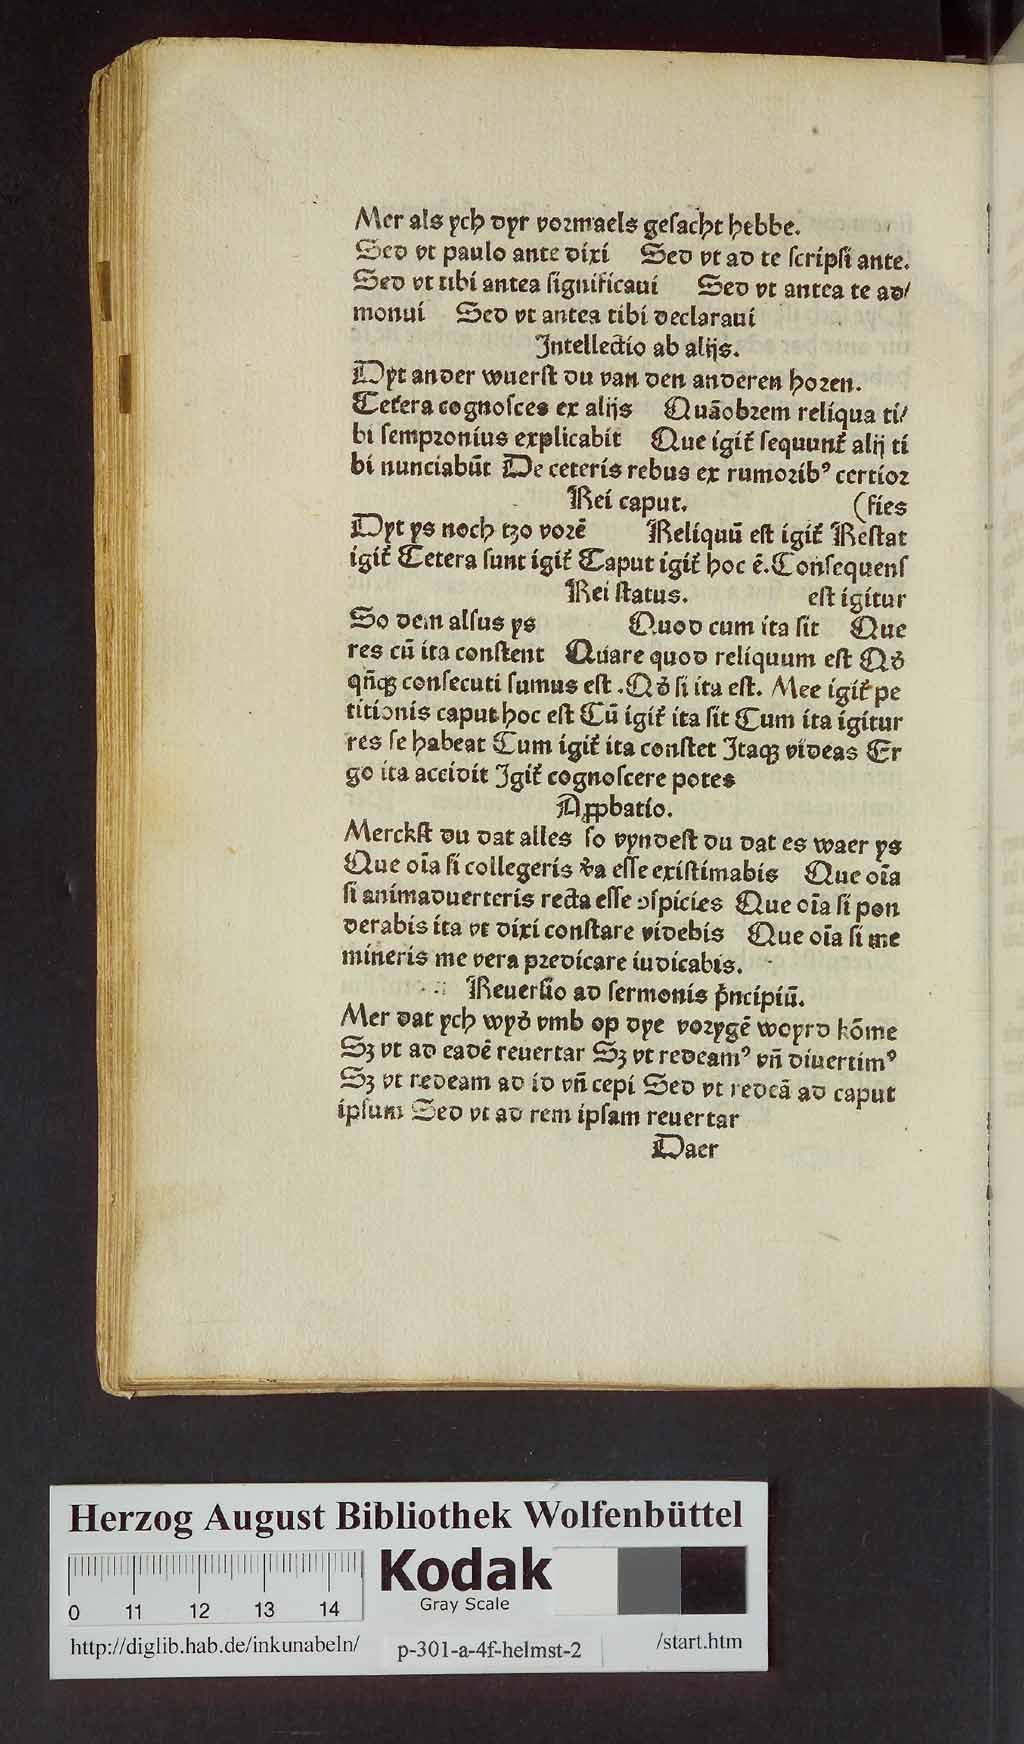 Mer als ych dyr vormaels gesacht hebbe.
Sed vt paulo ante dixi Sed vt ad te scripsi ante.
Sed vt tibi antea significaui Sed vt antea te ad/
monui Sed vt antea tibi declaraui
Intellectio ab alijs.
Dyt ander wuerst du van den anderen horen.
Cetera cognosces ex alijs Quãobrem reliqua ti/
bi sempronius explicabit Que igit᷑ sequunt᷑ alij ti
bi nunciabũt De ceteris rebus ex rumorib⁹ certior
Rei caput. (fies
Dyt ys noch tzo vorẽ Reliquũ est igit᷑ Restat
igit᷑ Cetera sunt igit᷑ Caput igit᷑ hoc ẽ. Consequens
Rei status. est igitur
So dem alsus ys Quod cum ita sit Que
res cũ ita constent Quare quod reliquum est Qd̓
qñqꝫ consecuti sumus est . Qd̓ si ita est. Mee igit᷑ pe
titionis caput hoc est Cũ igit᷑ ita sit Cum ita igitur
res se habeat Cum igit᷑ ita constet Itaqꝫ videas Er
go ita accidit Igit᷑ cognoscere potes
Aꝓpbatio.
Merckst du dat alles so vyndest du dat es waer ys
Que oĩa si collegeris v̓a esse existimabis Que oĩa
si animaduerteris recta esse ꝯspicies Que oĩa si pon
derabis ita vt dixi constare videbis Que oĩa si me
mineris me vera predicare iudicabis.
Reuersio ad sermonis p̓ncipiũ.
Mer dat ych wyd̓ vmb op dye vorygẽ woyrd kõme
Sꝫ vt ad eadẽ reuertar Sꝫ vt redeam⁹ vñ diuertim⁹
Sꝫ vt redeam ad id vñ cepi Sed vt redeã ad caput
ipsum Sed vt ad rem ipsam reuertar
Daer
Herzog August Bibliothek Wolfenbüttel
Kodak
Gray Scale
0 11 12 13 14
http://diglib.hab.de/inkunabeln/ p-301-a-4f-helmst-2 /start.htm